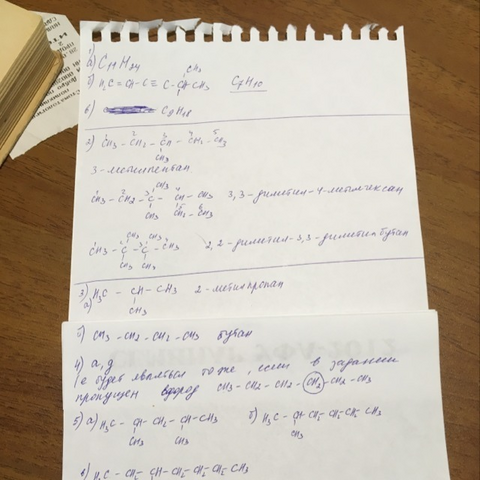 1)
а) C11H24
CH3
б) H3C = CH - C ≡ C - CH - CH3 C7H10
в) C8H18
2) CH3 - CH2 - CH - CH2 - CH3
1 2 3 4 5
CH3
3-метилпентан
CH3
CH3 - CH2 - C - CH - CH3 3,3-диметил-4-метилгексан
CH3 CH2 - CH3
CH3 CH3
CH3 - C - C - CH3 2,2-диметил-3,3-диметилбутан
CH3 CH3
3) H3C - CH - CH3 2-метилпропан
а)
CH3
б) CH3 - CH2 - CH2 - CH3 бутан
4) а, д
е будет являться тоже, если в задании
пропущен водород CH3 - CH2 - CH2 - CH2 - CH2 - CH3
5) а) H3C - CH - CH2 - CH - CH3 б) H3C - CH - CH2 - CH2 - CH2 - CH3
CH3 CH3 CH3
в) H3C - CH2 - CH - CH2 - CH2 - CH2 - CH3